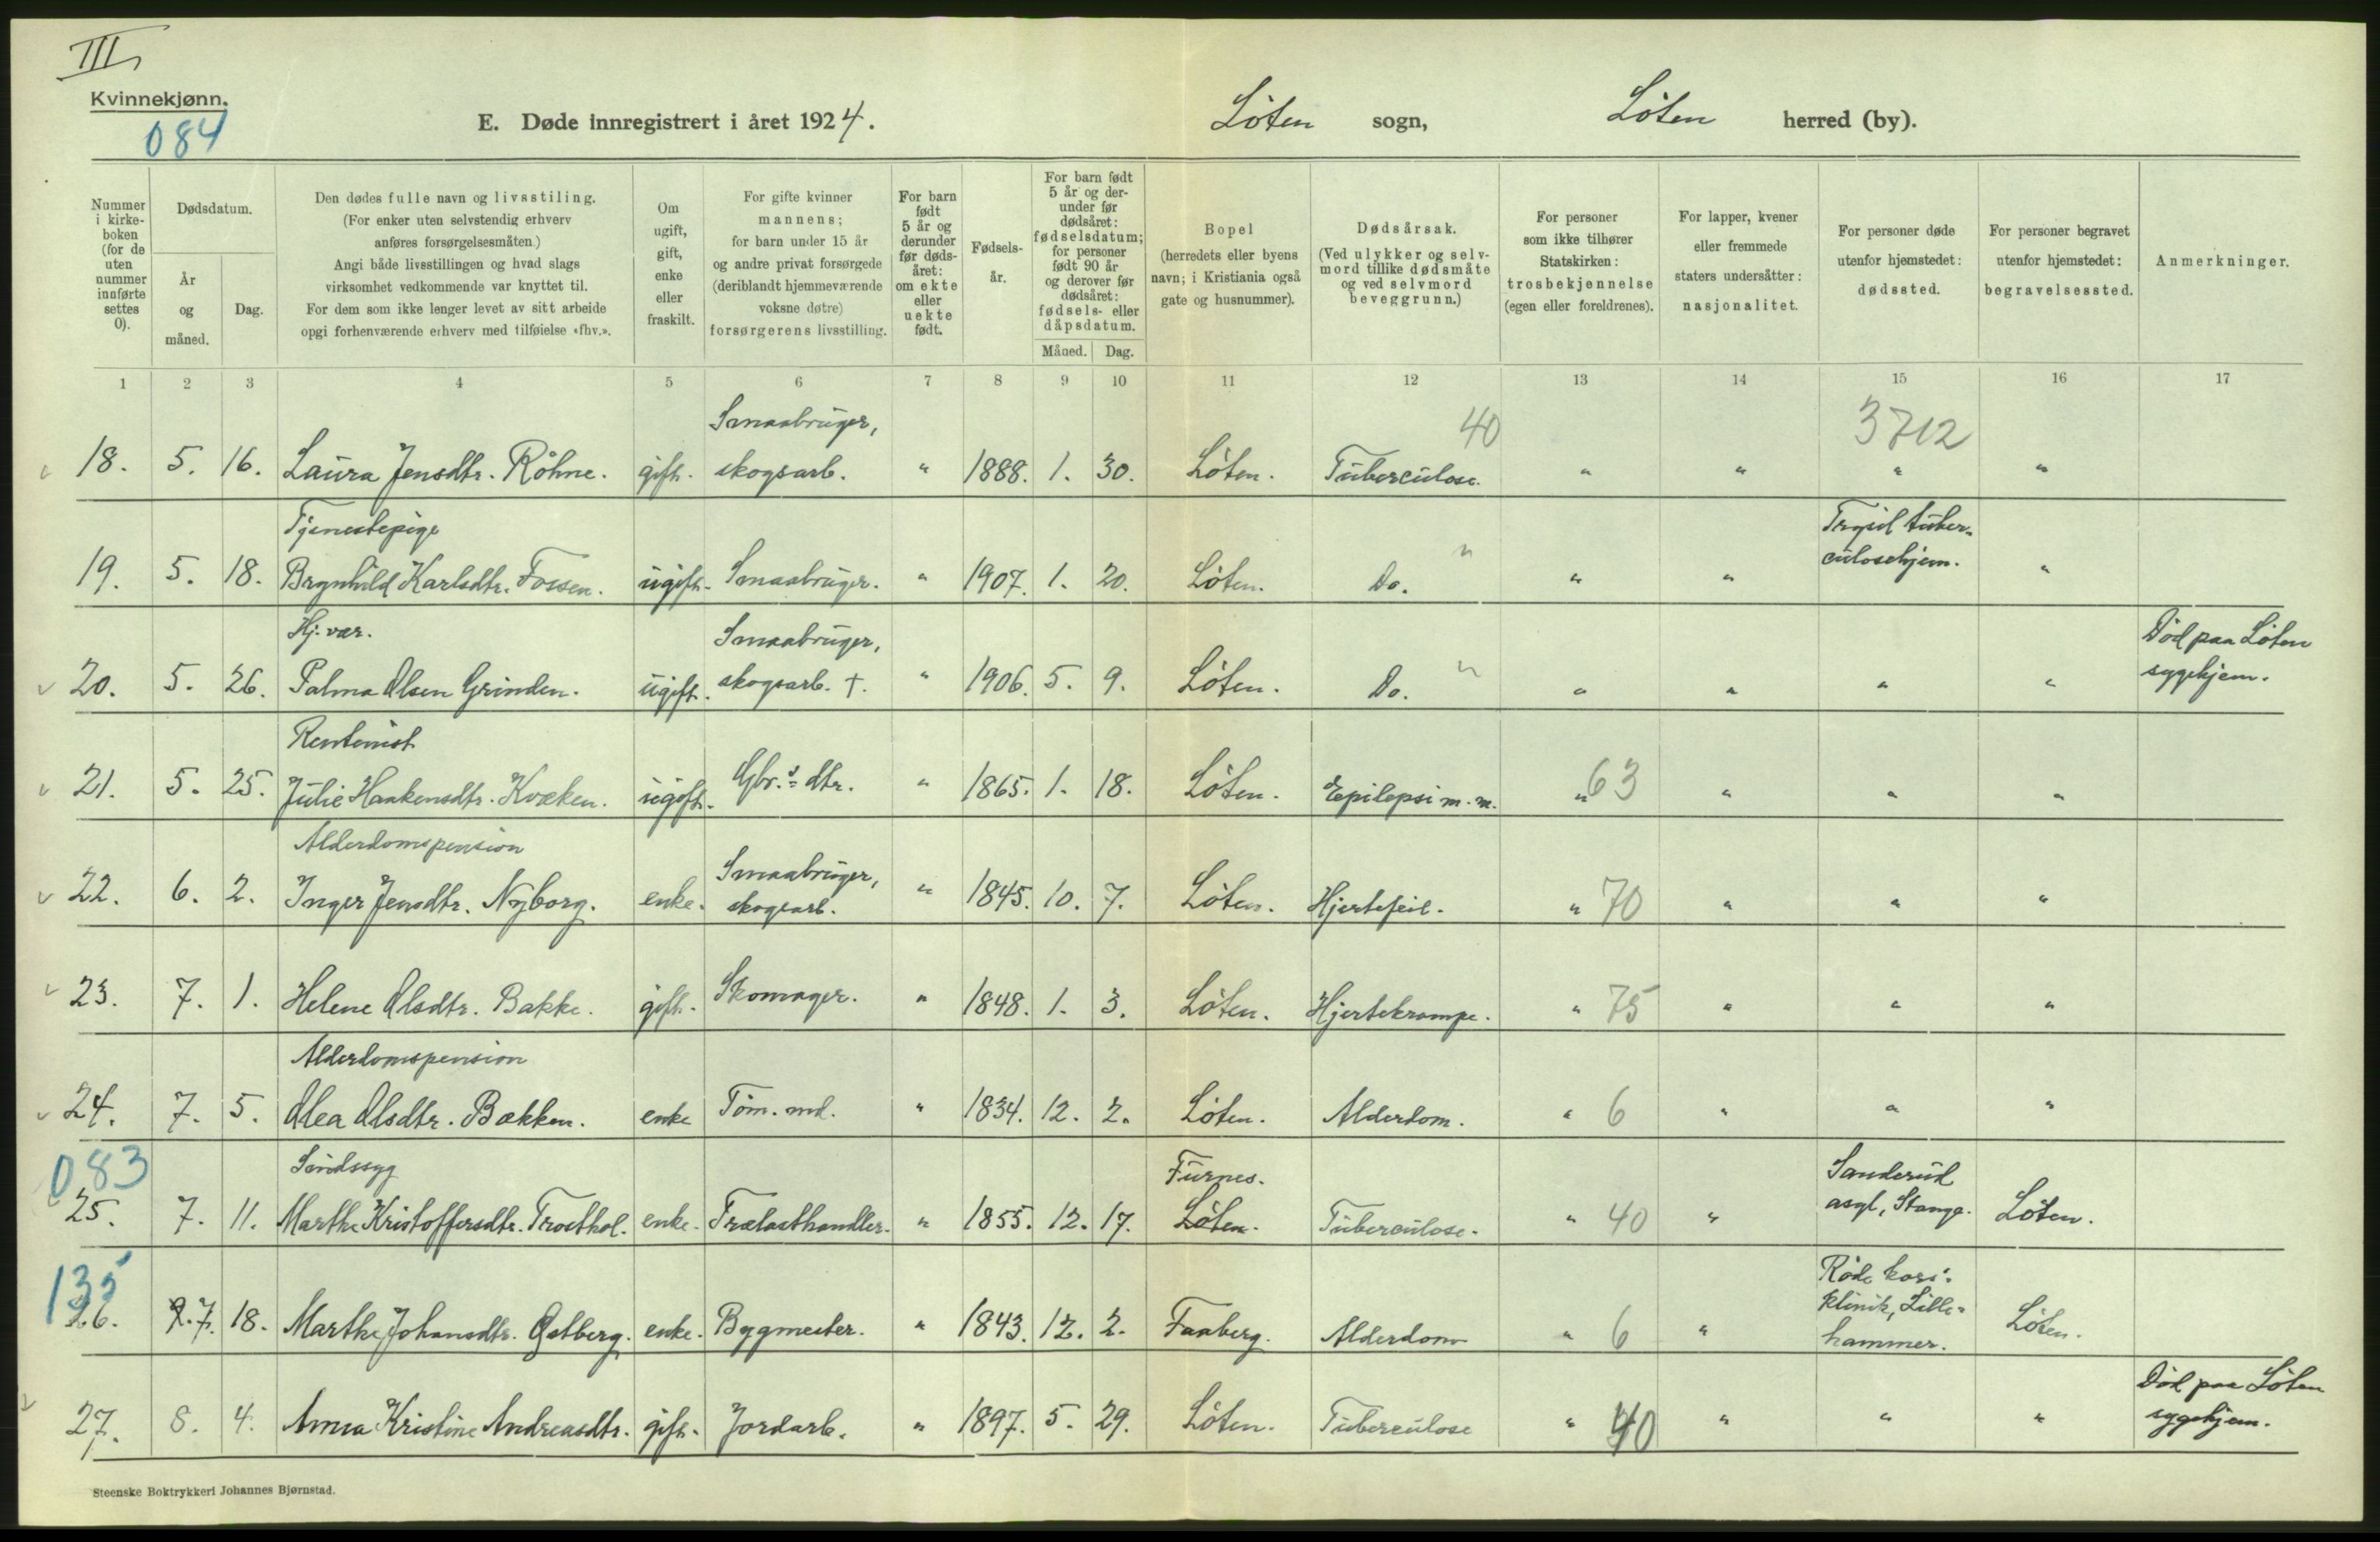 III
Kvinnekjønn.
084
E. Døde innregistrert i året 1924.
Löten sogn, Löten herred (by).
Nummer i kirke-boken (for de uten nummer innførte settes 0).
Dødsdatum.
År og måned.
Dag.
Den dødes fulle navn og livsstiling.
(For enker uten selvstendig erhverv
anføres forsørgelsesmåten.)
Angi både livsstillingen og hvad slags
virksomhet vedkommende var knyttet til.
For dem som ikke lenger levet av sitt arbeide
opgi forhenværende erhverv med tilføielse «fhv.».
Om ugift, gift, enke eller fraskilt.
For gifte kvinner
mannens;
for barn under 15 år
og andre privat forsørgede
(deriblandt hjemmeværende
voksne døtre)
forsørgerens livsstilling.
For barn født 5 år og derunder før døds-året: om ekte eller uekte født.
Fødsels-år.
For barn født 5 år og der-under før dødsåret: fødselsdatum; for personer født 90 år og derover før dødsåret: fødsels- eller dåpsdatum.
Måned. Dag.
Bopel
(herredets eller byens
navn; i Kristiania også
gate og husnummer).
Dødsårsak.
(Ved ulykker og selv-
mord tillike dødsmåte
og ved selvmord
beveggrunn.)
For personer
som ikke tilhører
Statskirken:
trosbekjennelse
(egen eller foreldrenes).
For lapper, kvener
eller fremmede
staters undersåtter:
nasjonalitet.
For personer døde
utenfor hjemstedet:
dødssted.
For personer begravet
utenfor hjemstedet:
begravelsessted.
Anmerkninger.
1 2 3 4 5 6 7 8 9 10 11 12 13 14 15 16 17
Smaabruger, 40 3712
18. 5. 16. Laura Jensdtr. Röhne. gift. skogsarb. " 1888. 1. 30. Löten. Tuberculose. " " " "
Tjenestepige Trysil tuber-
19. 5. 18. Brynhild Karlsdtr. Fossen. ugift. Smaabruger. " 1907. 1. 20. Löten. Do. " " " culosehjem. "
Hj. vær. Smaabruger, Död paa Löten
20. 5. 26. Palma Olsen Grinden. ugift. skogsarb. †. " 1906. 5. 9. Löten. Do. " " " " " sygehjem.
Rentenist
21. 5. 25. Julie Haakensdtr. Kvæken. ugift. Gbr.s dtr. " 1865. 1. 18. Löten. Epilepsi m. m. " 63 " " "
Alderdomspension Smaabruger,
22. 6. 2. Inger Jensdtr. Nyborg. enke. skogsarb. " 1845. 10. 7. Löten. Hjertefeil. " 70 " " "
23. 7. 1. Helene Olsdtr. Bakke. gift. Skomager. " 1848. 1. 3. Löten. Hjertekrampe. " 75 " " "
Alderdomspension
24. 7. 5. Olea Olsdtr. Bækken. enke Töm. md. " 1834. 12. 2. Löten. Alderdom. " 6 " " "
083 Sindssyg Furnes. Sanderud
25. 7. 11. Marthe Kristoffersdtr. Trosthol. enke. Trælasthandler. " 1855. 12. 17. Löten. Tuberculose. " 40 " asyl, Stange. Löten.
135 Röde kors'
klinik, Lille-
26. 7. 18. Marthe Johansdtr. Østberg. enke. Bygmester. " 1843. 12. 2. Faaberg. Alderdom " 6 " hammer. Löten.
Död paa Löten
27. 8. 4. Anna Kristine Andreasdtr. gift. Jordarb. " 1897. 5. 29. Löten. Tuberculose " 40 " " " sygehjem.
Steenske Boktrykkeri Johannes Bjørnstad.